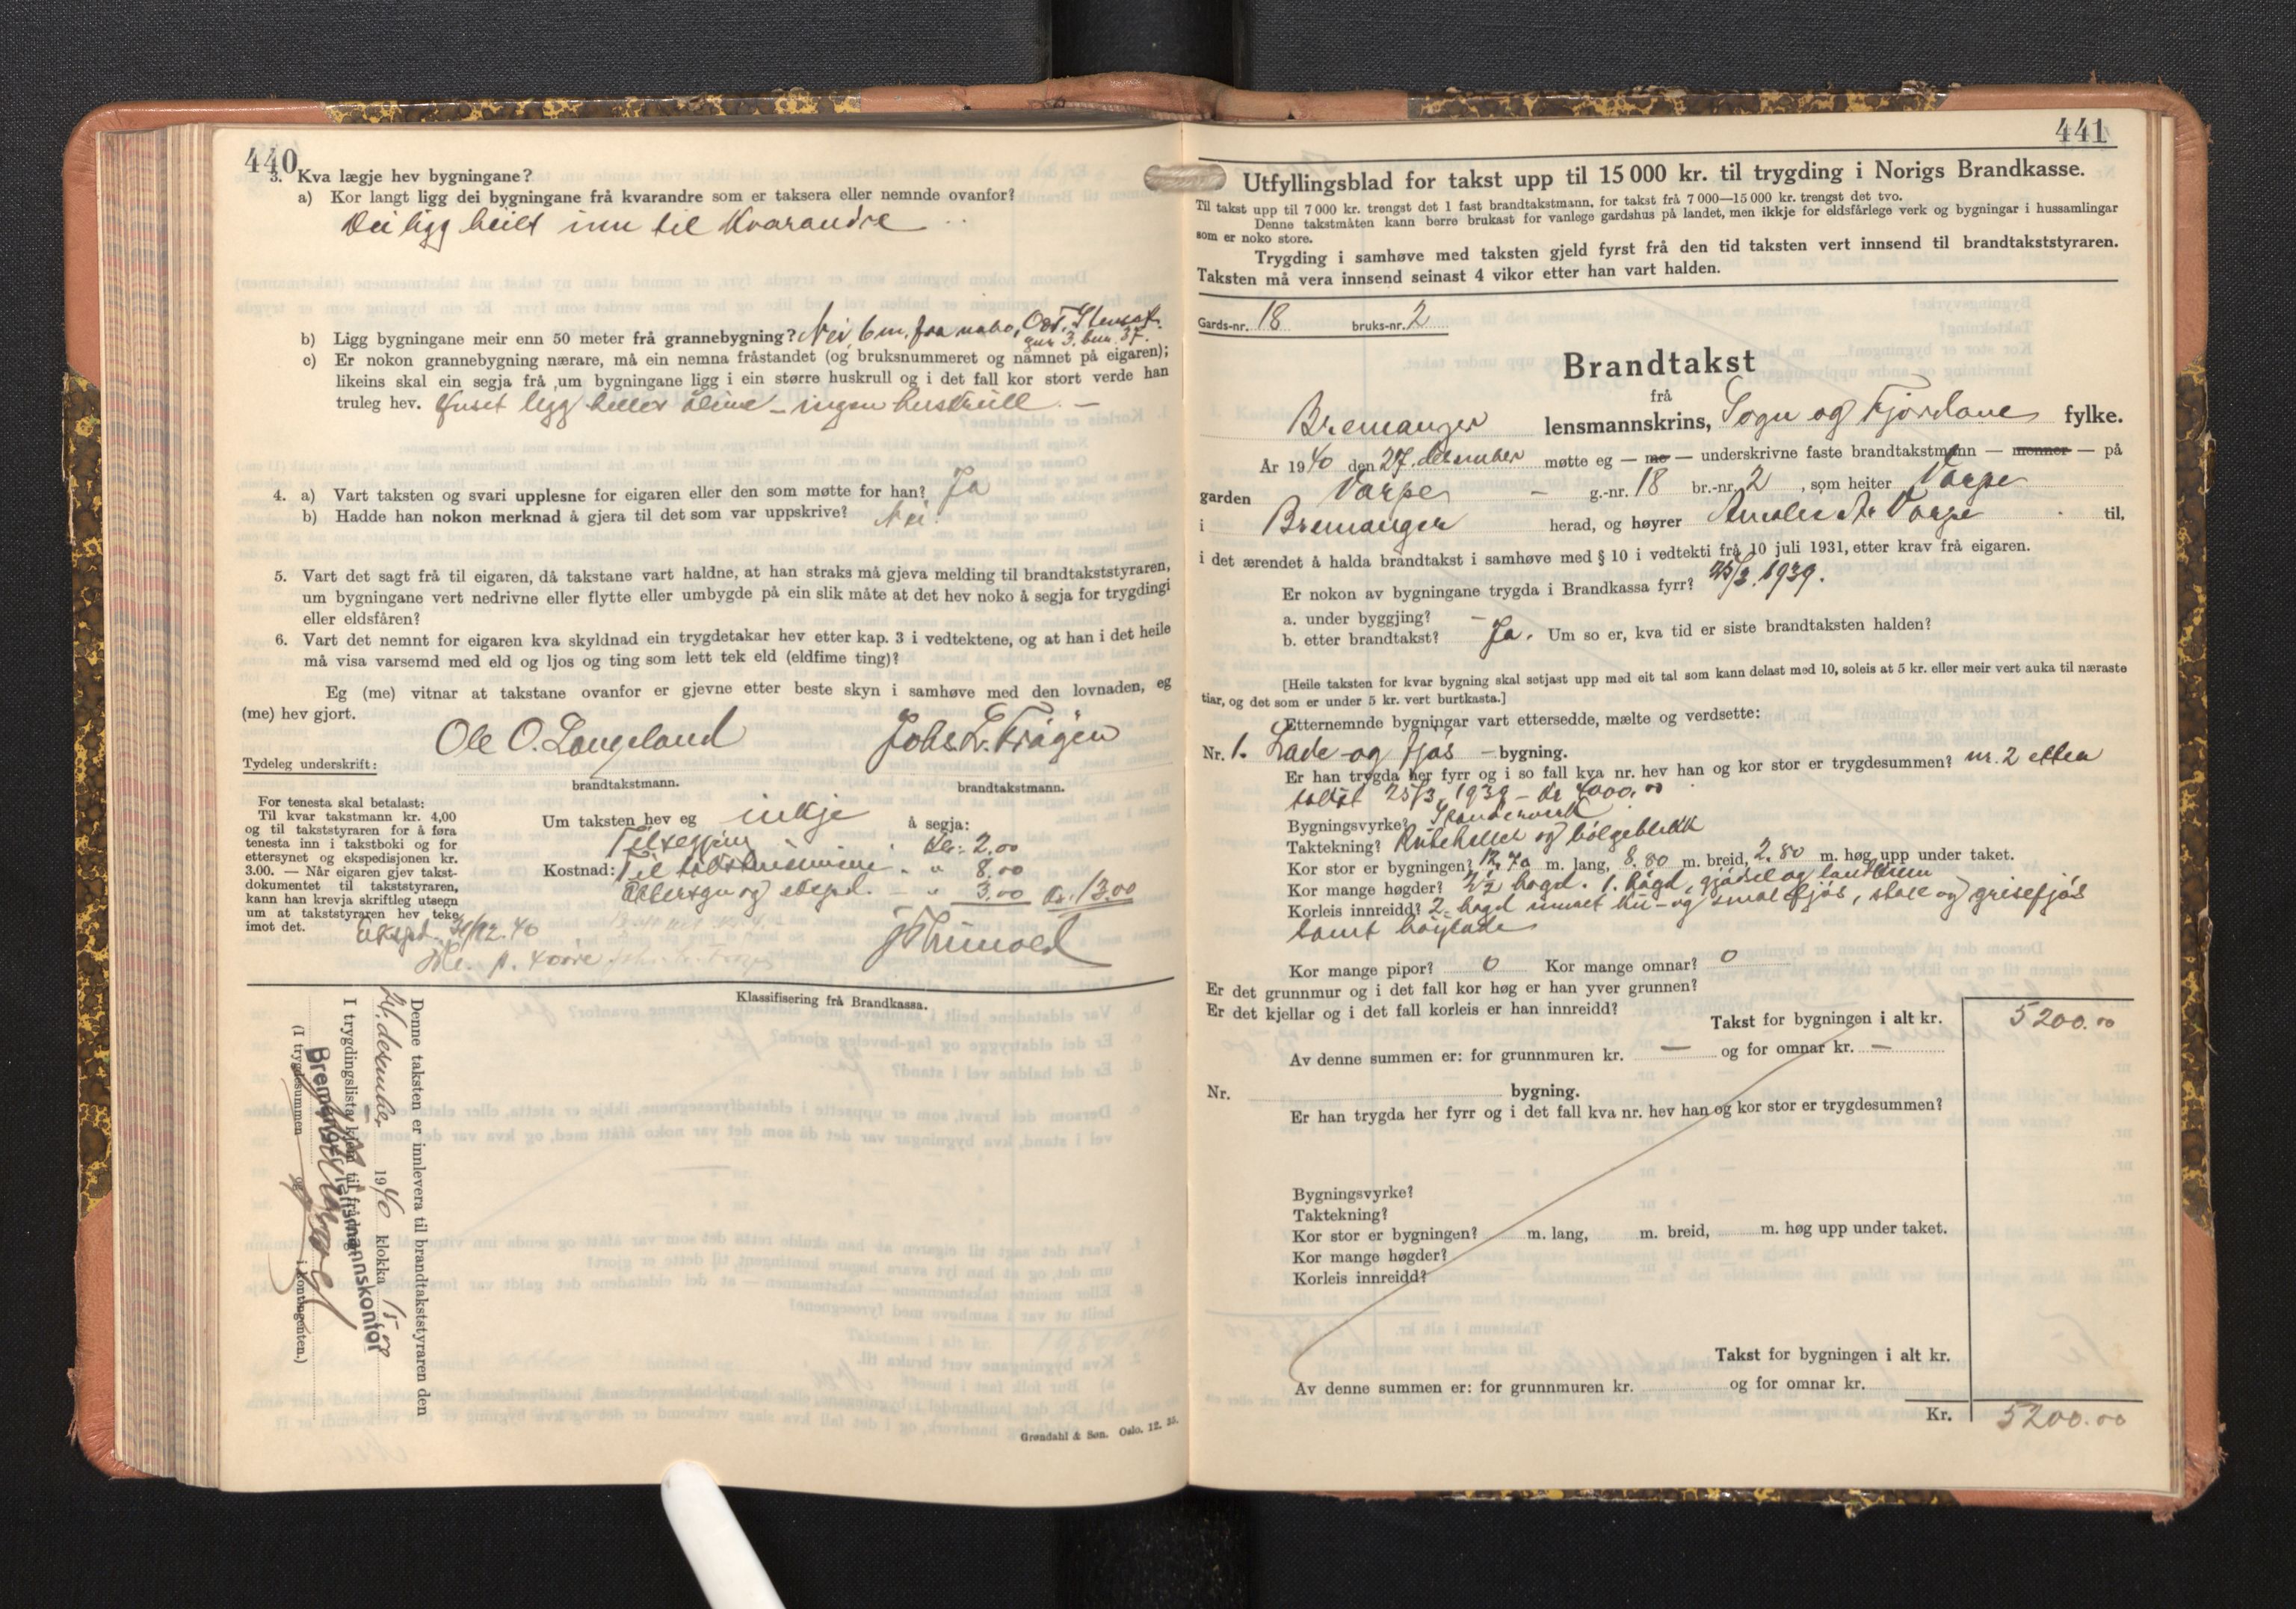 440
3. Kva lægje hev bygningane?
a) Kor langt ligg dei bygningane frå kvarandre som er taksera eller nemnde ovanfor?
Dei ligg heilt inn til kvarandre
b) Ligg bygningane meir enn 50 meter frå grannebygning? Nei, 6 m. fra nabo,
gnr. 3. bnr. 37.
c) Er nokon grannebygning nærare, må ein nemna fråstandet (og bruksnummeret og namnet på eigaren);
likeins skal ein segja frå um bygningane ligg i ein større huskrull og i det fall kor stort verde han
truleg hev. Huset ligg heller åleine – ingen huskrull. –
4. a) Vart taksten og svari upplesne for eigaren eller den som møtte for han? Ja
b) Hadde han nokon merknad å gjera til det som var uppskrive? Nei.
5. Vart det sagt frå til eigaren, då takstane vart haldne, at han straks må gjeva melding til brandtakststyraren,
um bygningane vert nedrivne eller flytte eller umbygde på ein slik måte at det hev noko å segja for trygdingi
eller eldsfåren?
6. Vart det nemnt for eigaren kva skyldnad ein trygdetakar hev etter kap. 3 i vedtektene, og at han i det heile
må visa varsemd med eld og ljos og ting som lett tek eld (eldfime ting)?
Eg (me) vitnar at takstane ovanfor er gjevne etter beste skyn i samhøve med den lovnaden, eg
(me) hev gjort.
Ole O. Langeland
Tydeleg underskrift:
brandtakstmann. brandtakstmann.
For tenesta skal betalast:
Til kvar takstmann kr. 4,00
og til takststyraren for å føra
tenesta inn i takstboki og for
ettersynet og ekspedisjonen kr.
3.00. — Når eigaren gjev takst-
dokumentet til takststyraren,
kann han krevja skriftleg utsegn
um at takststyraren hev teke
imot det.
Um taksten hev eg inkje å segja:
kr. 2.00
Kostnad: Til takstmennene - " 8.00
Ettersyn og eksped. - " 3.00 Kr. 13.00
Eksped. 31/12.40
Klassifisering frå Brandkassa.
Denne taksten er innlevera til brandtakststyraren den
21. desember 1940 klokka 15.00
I trygdingslista kjem til frådrag
Bremanger lensmannskontor
(I trygdesummen og i kontingenten.)
Grøndahl & Søn. Oslo. 12. 35.
441
Utfyllingsblad for takst upp til 15 000 kr. til trygding i Norigs Brandkasse.
Til takst upp til 7 000 kr. trengst det 1 fast brandtakstmann, for takst frå 7 000—15 000 kr. trengst det tvo.
Denne takstmåten kann berre brukast for vanlege gardshus på landet, men ikkje for eldsfårlege verk og bygningar i hussamlingar
som er noko store.
Trygding i samhøve med taksten gjeld fyrst frå den tid taksten vert innsend til brandtakststyraren.
Taksten må vera innsend seinast 4 vikor etter han vart halden.
Gards-nr. 18 bruks-nr. 2
Brandtakst
frå
Bremanger lensmannskrins, Sogn og Fjordane fylke.
År 1940 den 27. desember møtte eg — me — underskrivne faste brandtakstmann — menner — på
garden Varpe - g.-nr. 18 br.-nr. 2, som heiter Varpe
i Bremanger herad, og høyrer Varpe til,
i det ærendet å halda brandtakst i samhøve med § 10 i vedtekti frå 10 juli 1931, etter krav frå eigaren.
Er nokon av bygningane trygda i Brandkassa fyrr? 25/3. 1939.
a. under byggjing? –
b. etter brandtakst? Ja. Um so er, kva tid er siste brandtaksten halden?
[Heile taksten for kvar bygning skal setjast upp med eit tal som kann delast med 10, soleis at 5 kr. eller meir vert auka til næraste
tiar, og det som er under 5 kr. vert burtkasta.]
Etternemnde bygningar vart ettersedde, mælte og verdsette:
Nr. 1. Lade og fjøs - bygning.
Er han trygda her fyrr og i so fall kva nr. hev han og kor stor er trygdesummen? nr. 2 etter
takst 25/3. 1939 – kr 4000.00
Bygningsvyrke? Standerverk
Taktekning? Ruteheller og bølgeblikk
Kor stor er bygningen? 12.70 m. lang, 8.80 m. breid, 2.80 m. høg upp under taket.
Kor mange høgder? 2½ høgd. 1. høgd, gjødsel og
Korleis innreidd? 2. høgd innset ku- og smalefjøs, stall og grisefjøs
samt høylade
Kor mange pipor? 0 Kor mange omnar? 0
Er det grunnmur og i det fall kor høg er han yver grunnen?
Er det kjellar og i det fall korleis er han innreidd?
Takst for bygningen i alt kr. 5200.00
Av denne summen er: for grunnmuren kr. — og for omnar kr. —
Nr. bygning.
Er han trygda her fyrr og i det fall kva nr. hev han og kor stor er trygdesummen?
Bygningsvyrke?
Taktekning?
Kor stor er bygningen? m. lang, m. breid, m. høg upp under taket.
Kor mange høgder?
Korleis innreidd?
Takst for bygningen i alt kr.
Av denne summen er: for grunnmuren kr. og for omnar kr.
Kr. 5200.00